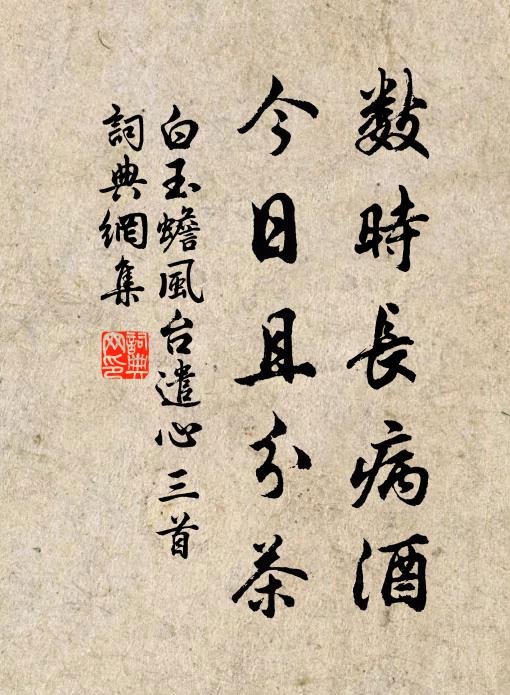 数時長病酒
今日且分茶
白玉蟾風台遣心三首
詞典網集
詞典网印